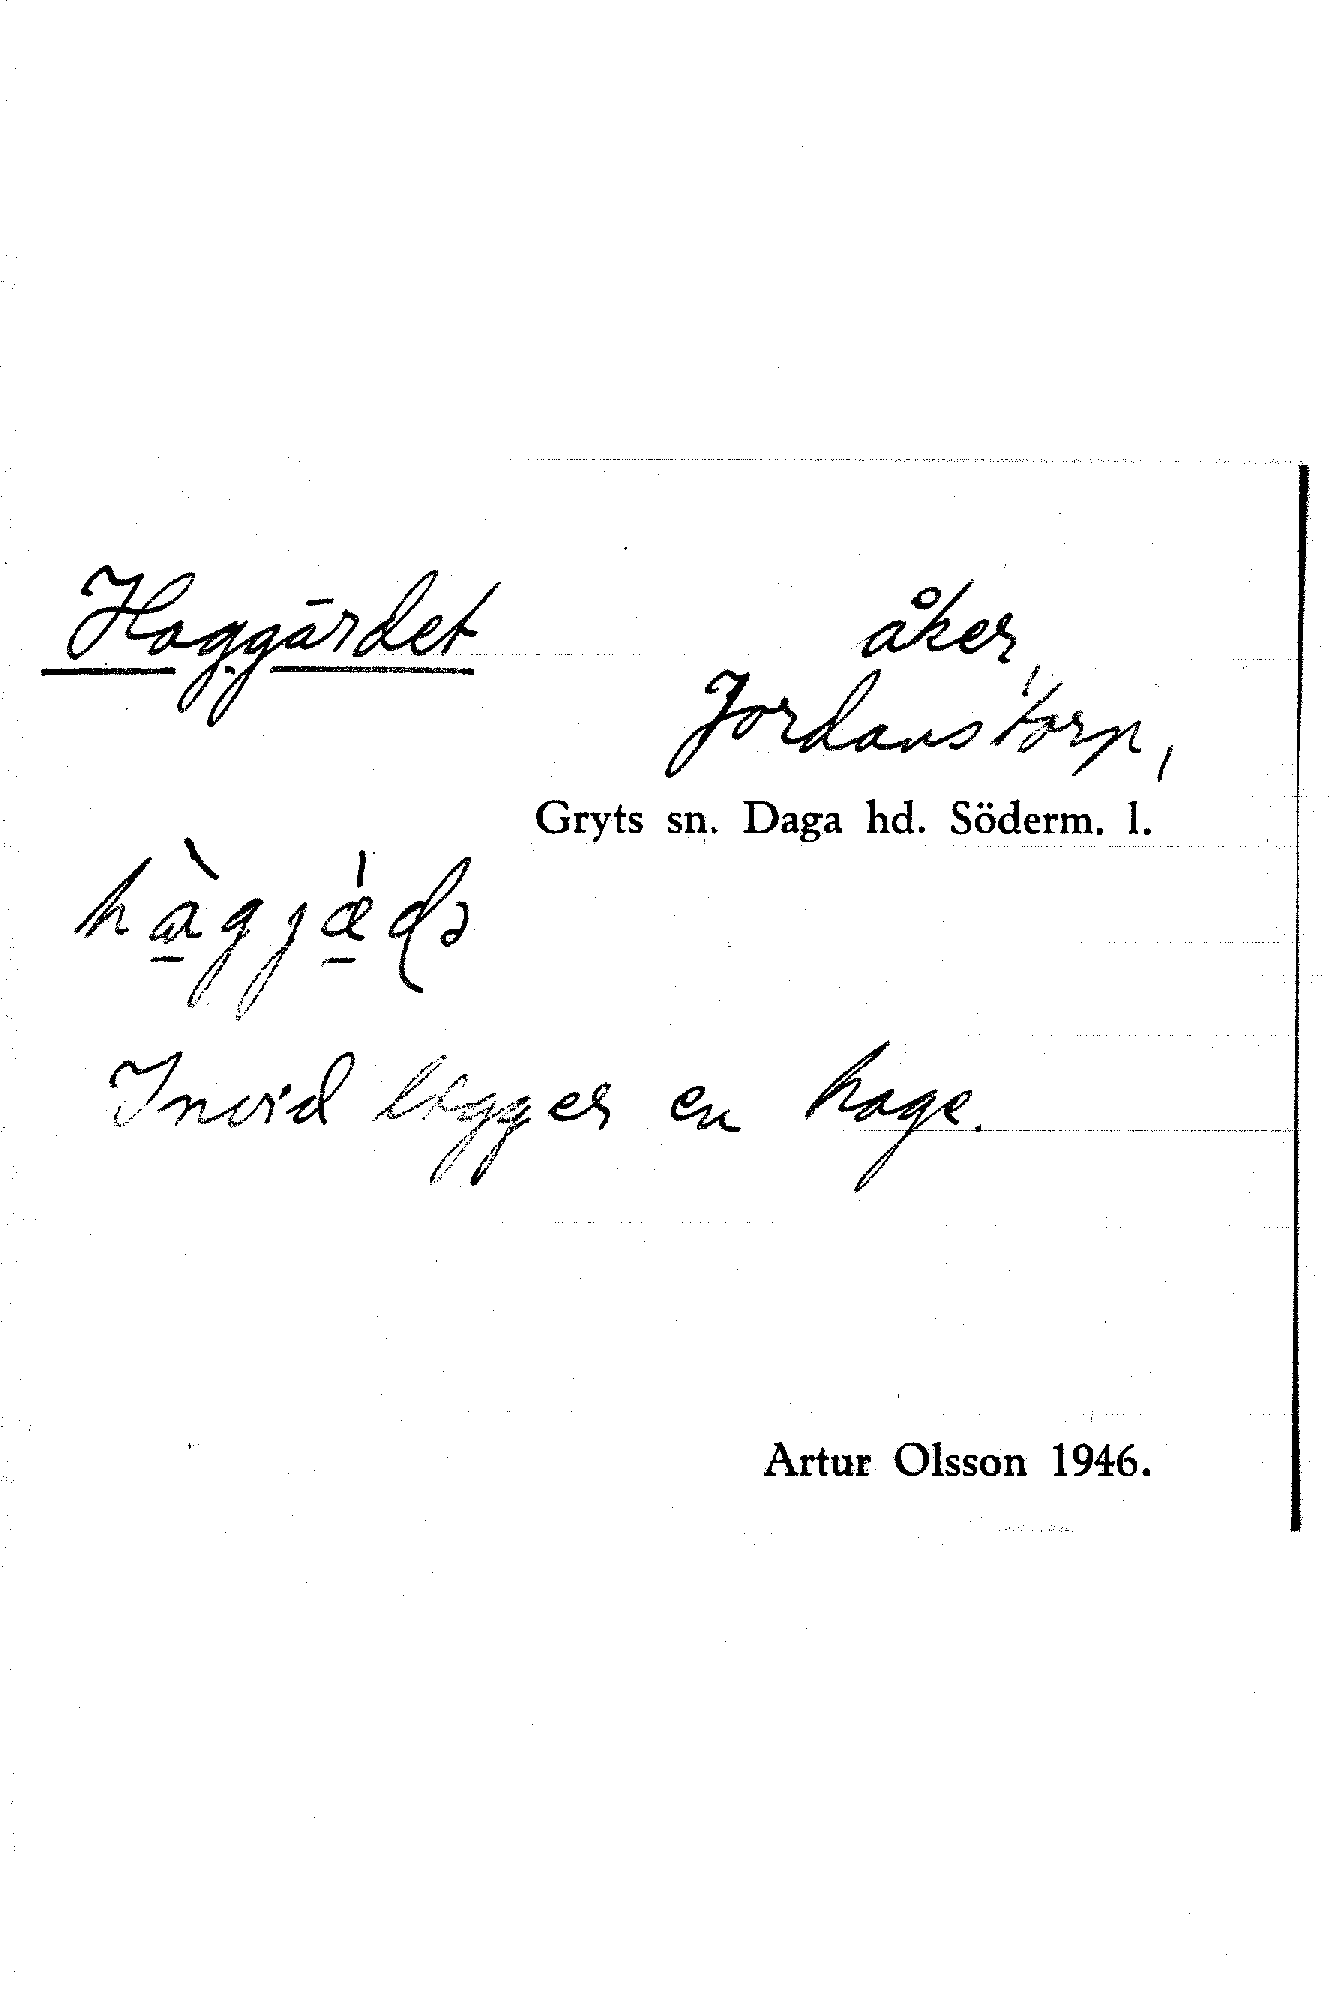 Haggärdet
åker,
Jordanstorp,
Gryts sn. Daga hd. Söderm. l.
Invid ligger en hage.
Artur Olsson 1946.